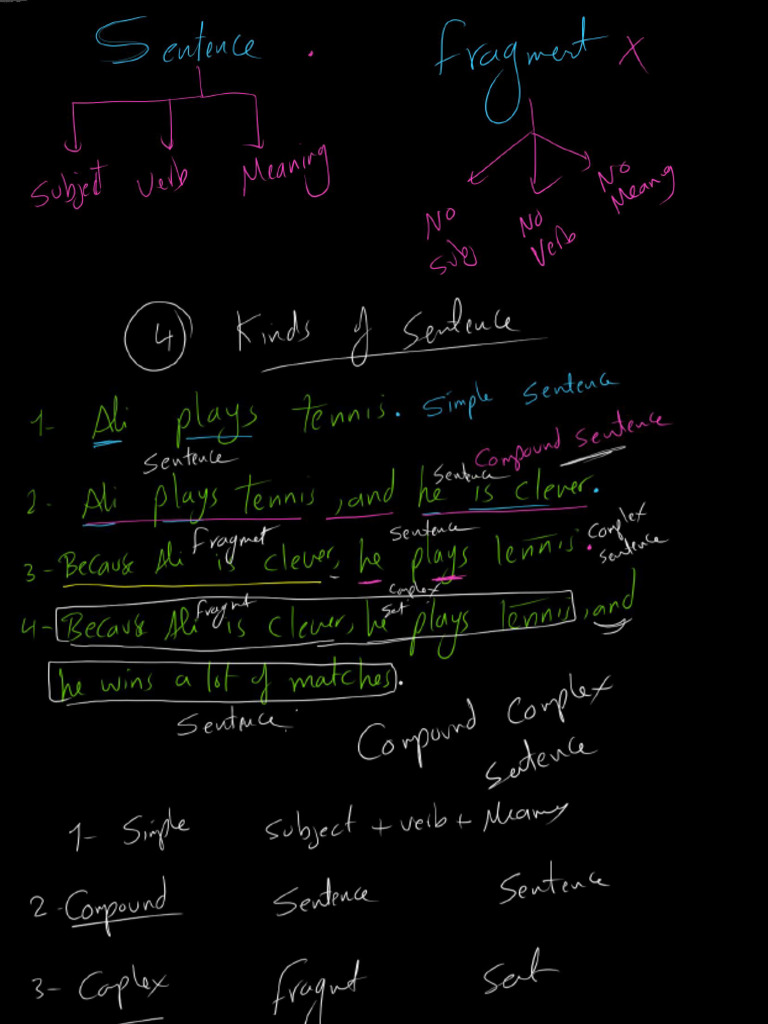 Sentence . Fragment X
Subject Verb Meaning
No Subj No Verb No Meang
4 Kinds of Sentence
1- Ali plays tennis. Simple Sentence
Sentence Sentence Compound Sentence
2- Ali plays tennis , and he is clever.
Fragmet Sentence Complex sentence
3- Because Ali is clever, he plays tennis.
Fragmt Complex Set
4- Because Ali is clever, he plays tennis, and
he wins a lot of matches.
Sentence.
Compound Complex
Sentence
1- Simple Subject + verb + Meaning
2- Compound Sentence Sentence
3- Coplex fragmt sent